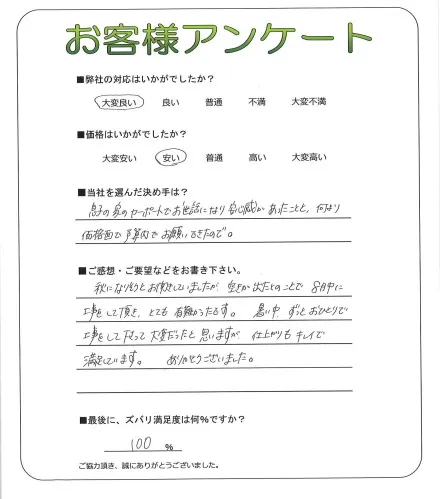 お客様アンケート
■弊社の対応はいかがでしたか?
大変良い 良い 普通 不満 大変不満
■価格はいかがでしたか?
大変安い 安い 普通 高い 大変高い
■当社を選んだ決め手は?
息子の家のカーポートでお世話になり安心感があったことと、何より
価格面で予算内でお願いできたので。
■ご感想・ご要望などをお書き下さい。
秋になりそうとお伺いしていましたが、空きが出たとのことで 8月中に
工事をして頂き、とても有難かったです。 暑い中、ずっとおひとりで
工事をして下さって大変だったと思いますが 仕上がりもキレイで
満足しています。 ありがとうございました。
■最後に、ズバリ満足度は何%ですか?
100 %
ご協力頂き、誠にありがとうございました。